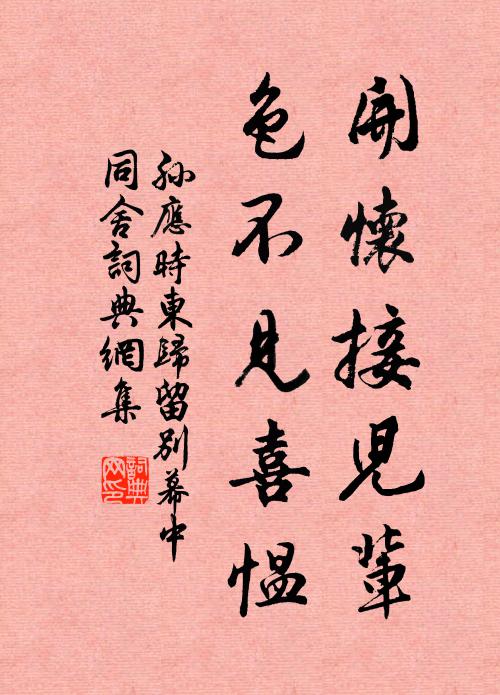 開懷接兒輩
色不見喜愠
孫應時東歸留別幕中
同舍詞典網集
詞典
网印